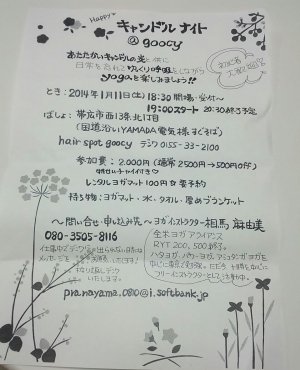 Happy♥
キャンドルナイト
@ goocy
あたたかいキャンドルの光と共に
日常を忘れてゆっくり予約しながら
yogaを楽しみましょう!!
初心者
大歓迎
とき：2014年1月11日(土) 18:30 開場・受付〜
19:00スタート 20:30終了予定
ばしょ：帯広市西13条北1丁目
(国道沿いYAMADA電気様そば)
hair spot goocy デンワ 0155-33-2100
参加費：2.000円 (通常2500円→500円off)
レンタルヨガマット100円 要予約
持ち物：ヨガマット・水・タオル・厚めブランケット
〜問い合せ・申し込み先〜 ヨガインストラクター相馬麻由美
080-3505-8116
全米ヨガアライアンス
RYT 200,500修了。
仕事中でデンワに出られない時は
メッセージを
折り返しデンワ
いたします。
ハタヨガ、パワーヨガ、アシュタンガヨガを
フリーインストラクターとして活動中。
pranayama.0810@i.softbank.jp